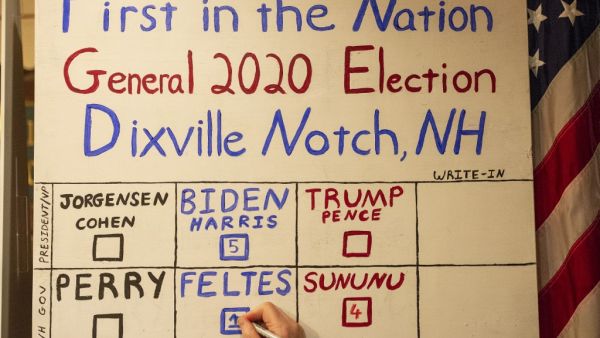 First in the Nation
General 2020 Election
Dixville Notch, NH
WRITE-IN
PRESIDENT/VP
JORGENSEN
COHEN
BIDEN
HARRIS
5
TRUMP
PENCE
NH GOV.
PERRY
FELTES
1
SUNUNU
4